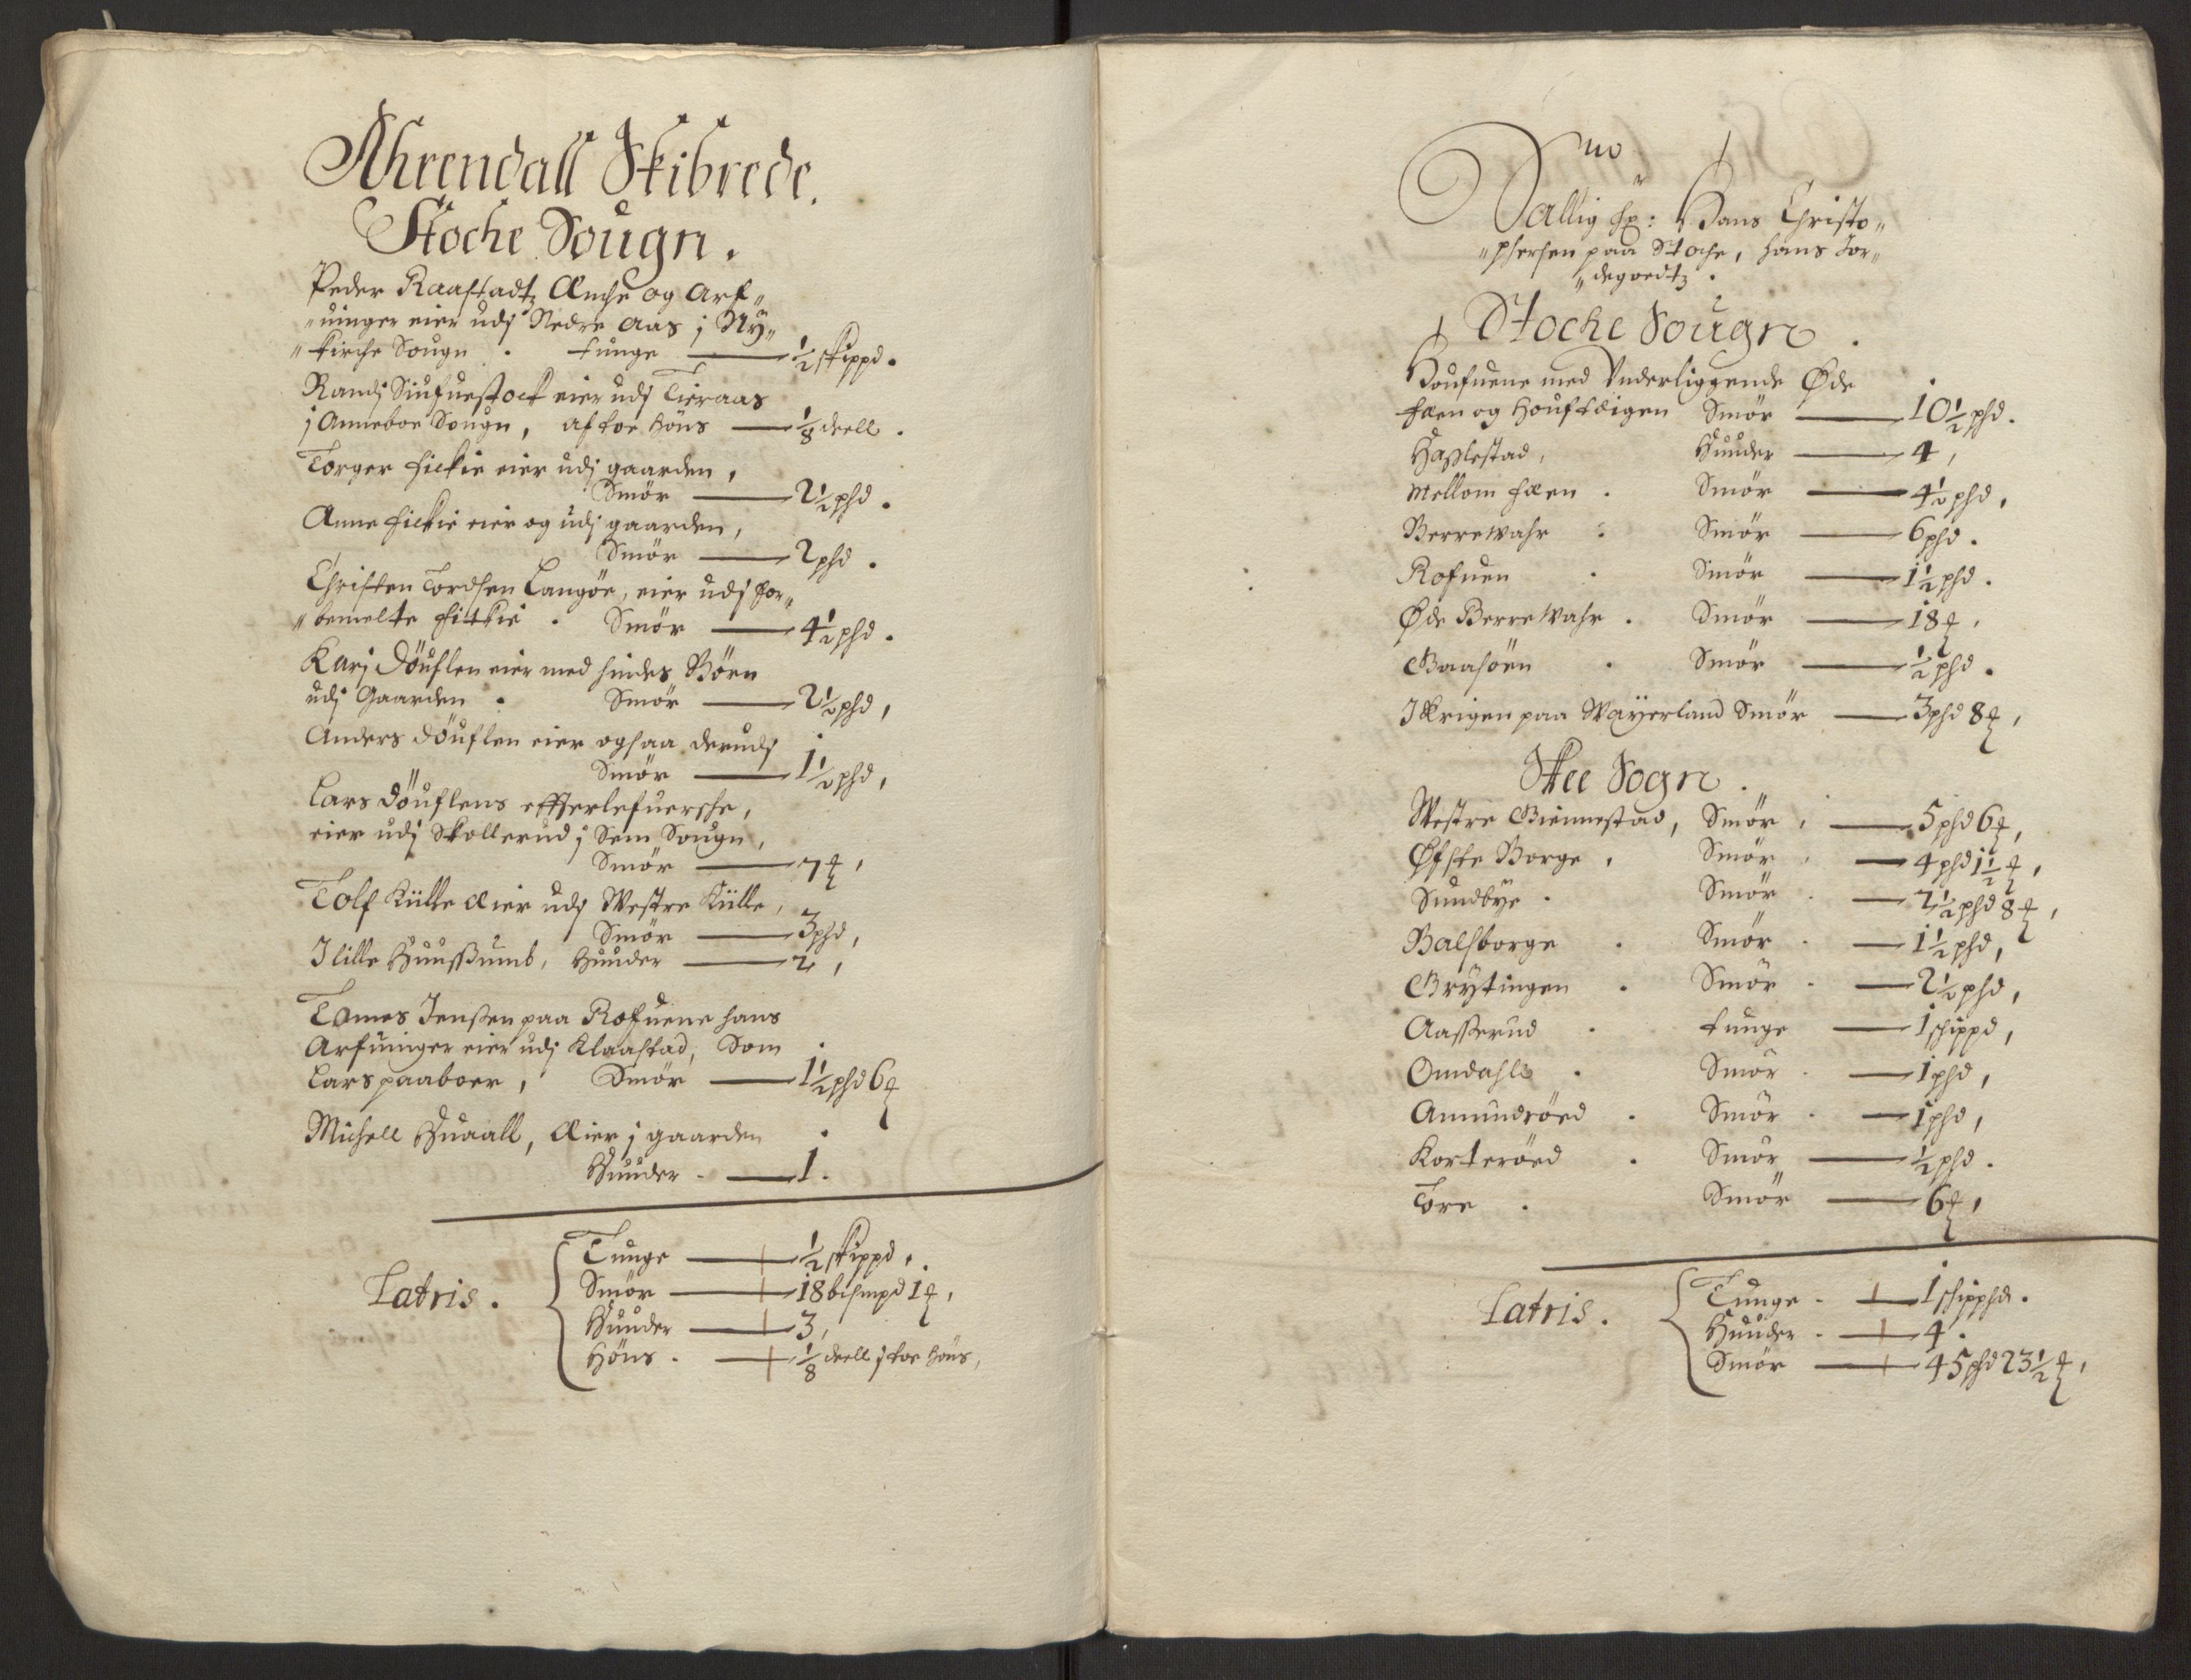 Ahrendall Skibrede.
Stoche Sougn.
Peder Raastadtz Enche og Arf„
„uinger eier udj Nedre Aas j Ny„
„kirche Sougn . tunge — ½ skippd.
Randj eier udj Tieraas
j Anneboe Sougn, af toe höns — ⅛ deell.
Torger fickie eier udj gaarden,
Smör — 2½ phd.
Anne fickie eier og udj gaarden,
Smör — 2 phd.
Christen Tordsen Langöe, eier udj for„
„bemelte fitkie . Smör — 4½ phd.
Karj Döuflen eier med hindes Börn
udj Gaarden . Smör — 2½ phd,
Anders döuflen eier ogsaa derudj
Smör — 1½ phd,
Lars döuflens effterlefuersche,
eier udj Skollerud j Sem Sougn,
Smör — 7 ℔,
Tolf Külle Eier udj Westre Külle,
Smör — 3 phd,
I lille Huussumb, Huuder — 2,
Tomes Jensen paa Rofuene hans
Arfuinger eier udj Klaastad, Som
Lars paaboer, Smör — 1½ phd 6 ℔
Michell Huaall, Eier j gaarden
Huuder . — 1.
Latris.
Tunge — ½ skippd,
Smör — 18 bismpd 1 ℔,
Huuder — 3,
Höns . — ⅛ deell j toe höns,
No 1
Wallig hr: Hans Christo„
„phersen paa Stoche, hans Jor„
„degoedtz.
Stoche Sougn.
Houfuene med Vnderliggende Øde
faen og Houfteigen Smör — 10½ phd.
Hasslestad, Huuder — 4,
Mellom faen . Smör — 4½ phd,
Berrewahr : Smör — 6 phd.
Rofuen . Smör — 1½ phd.
Øde Berrewahr . Smör — 18 ℔,
Gaasöen . Smör — ½ phd.
Wäyerland Smör — 3 phd 8 ℔,
Skee Sogn.
Westre Giennestad, Smör, — 5 phd 6 ℔,
Øfste Borge, Smör, — 4 phd 1½ ℔,
Sundbye . Smör . — 2½ phd 8 ℔,
Balsborge . Smör . — 1½ phd,
Grytingen . Smör . — 2½ phd,
Aasserud . tunge — 1 schippd,
Omdahl . Smör . — 1 phd,
Amundröed . Smör . — 1 phd,
Korteröed . Smör — ½ phd.
Tore . Smör — 6 ℔,
Latris.
Tunge . — 1 schipphd.
Huuder . — 4.
Smör — 45 phd 23½ ℔,